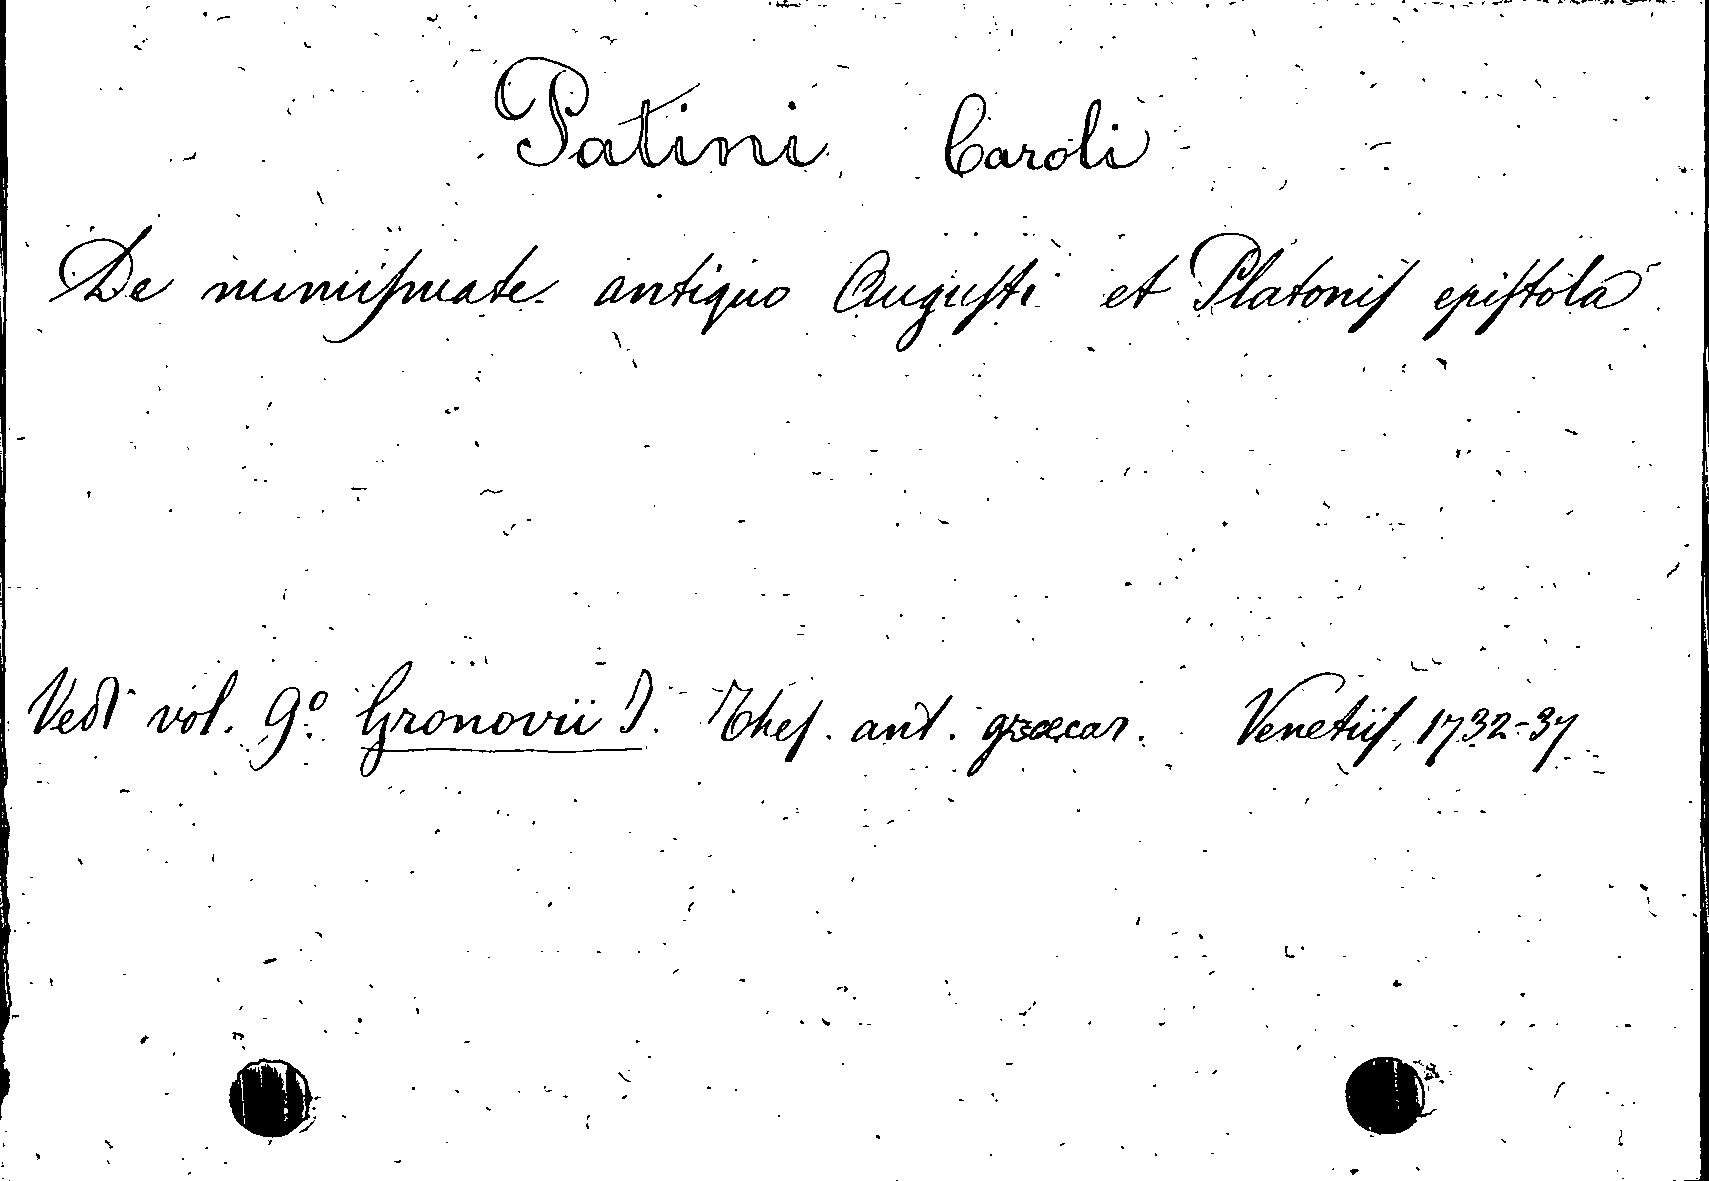 Patini Caroli
De numiſmate antiquo Auguſti et Platoniſ epiſtola
Vedi vol. 9º Gronovii I. Theſ. ant. græcar. Venetiiſ, 1732-37